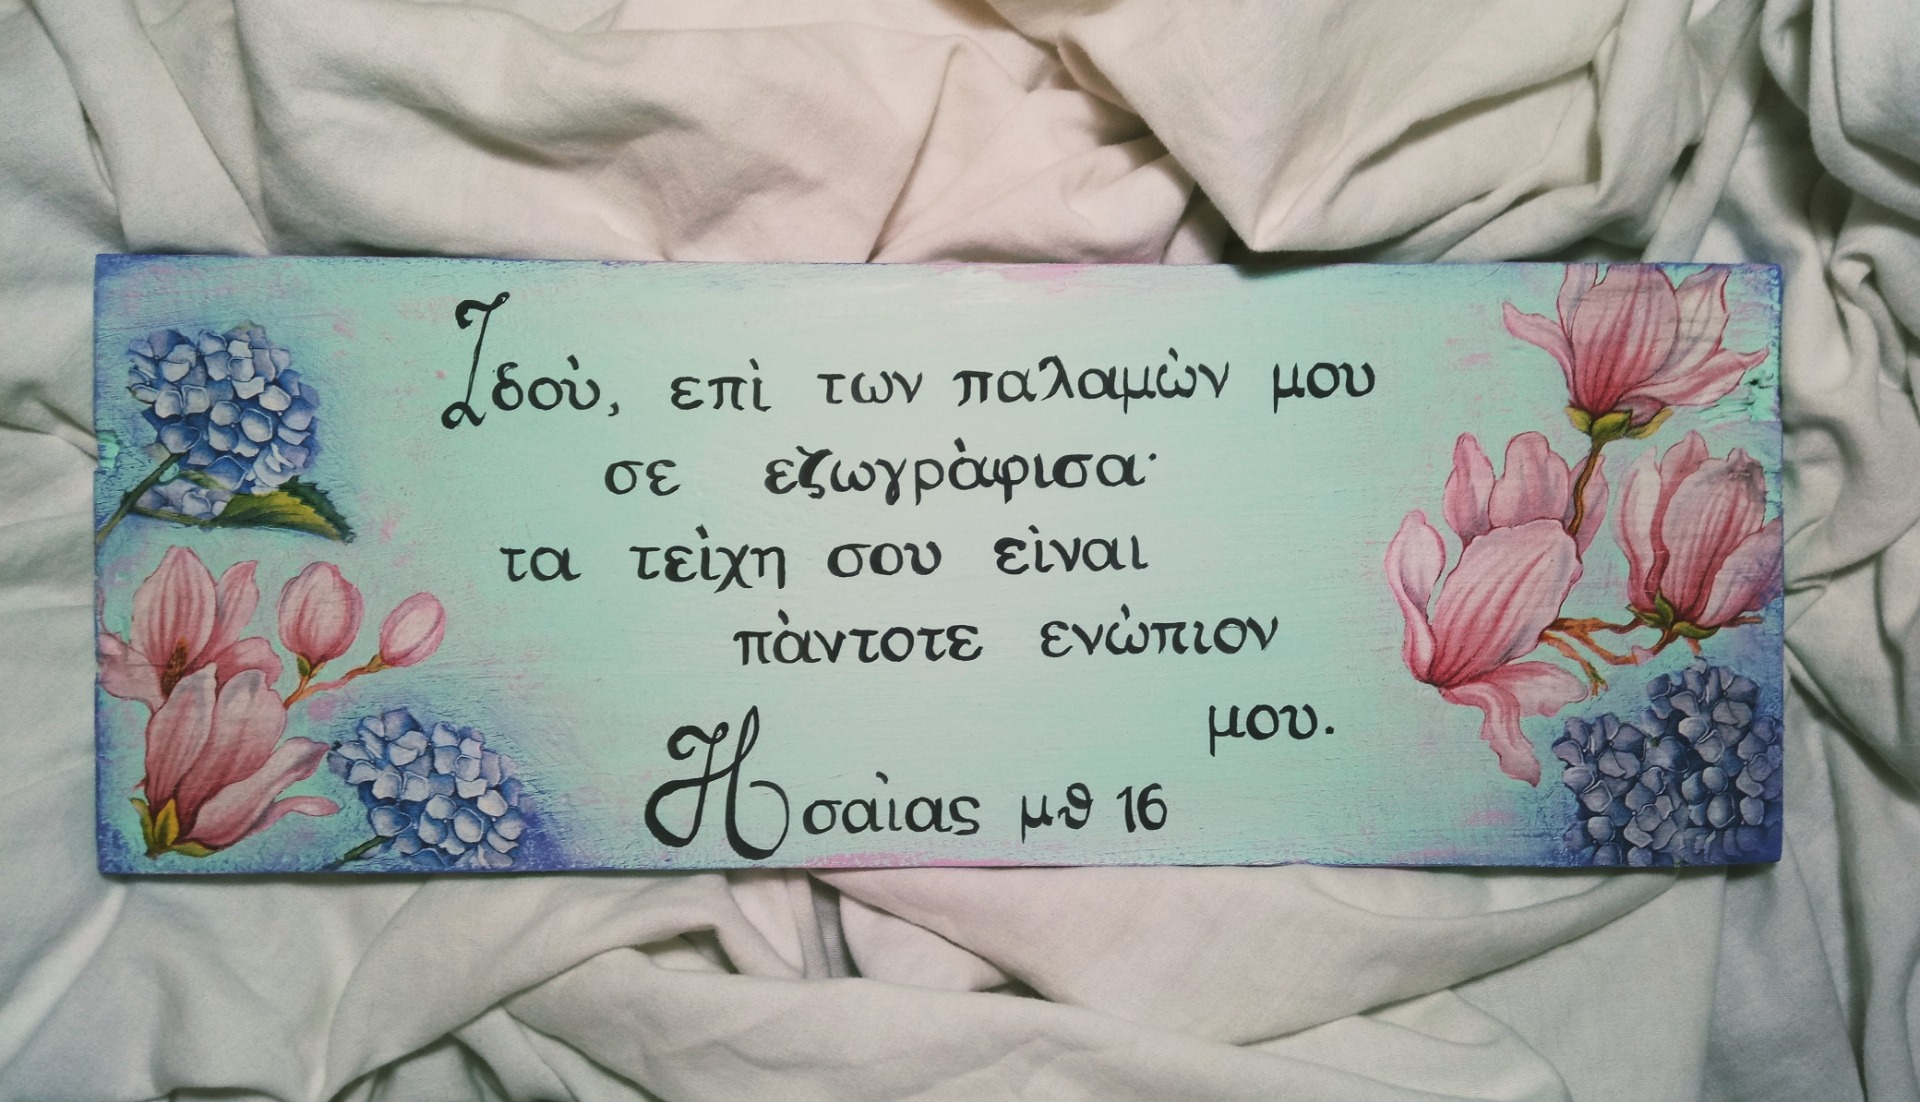 Ιδού, επί των παλαμών μου
σε εζωγράφισα·
τα τείχη σου είναι
πάντοτε ενώπιον
μου.
Ησαΐας μθ 16